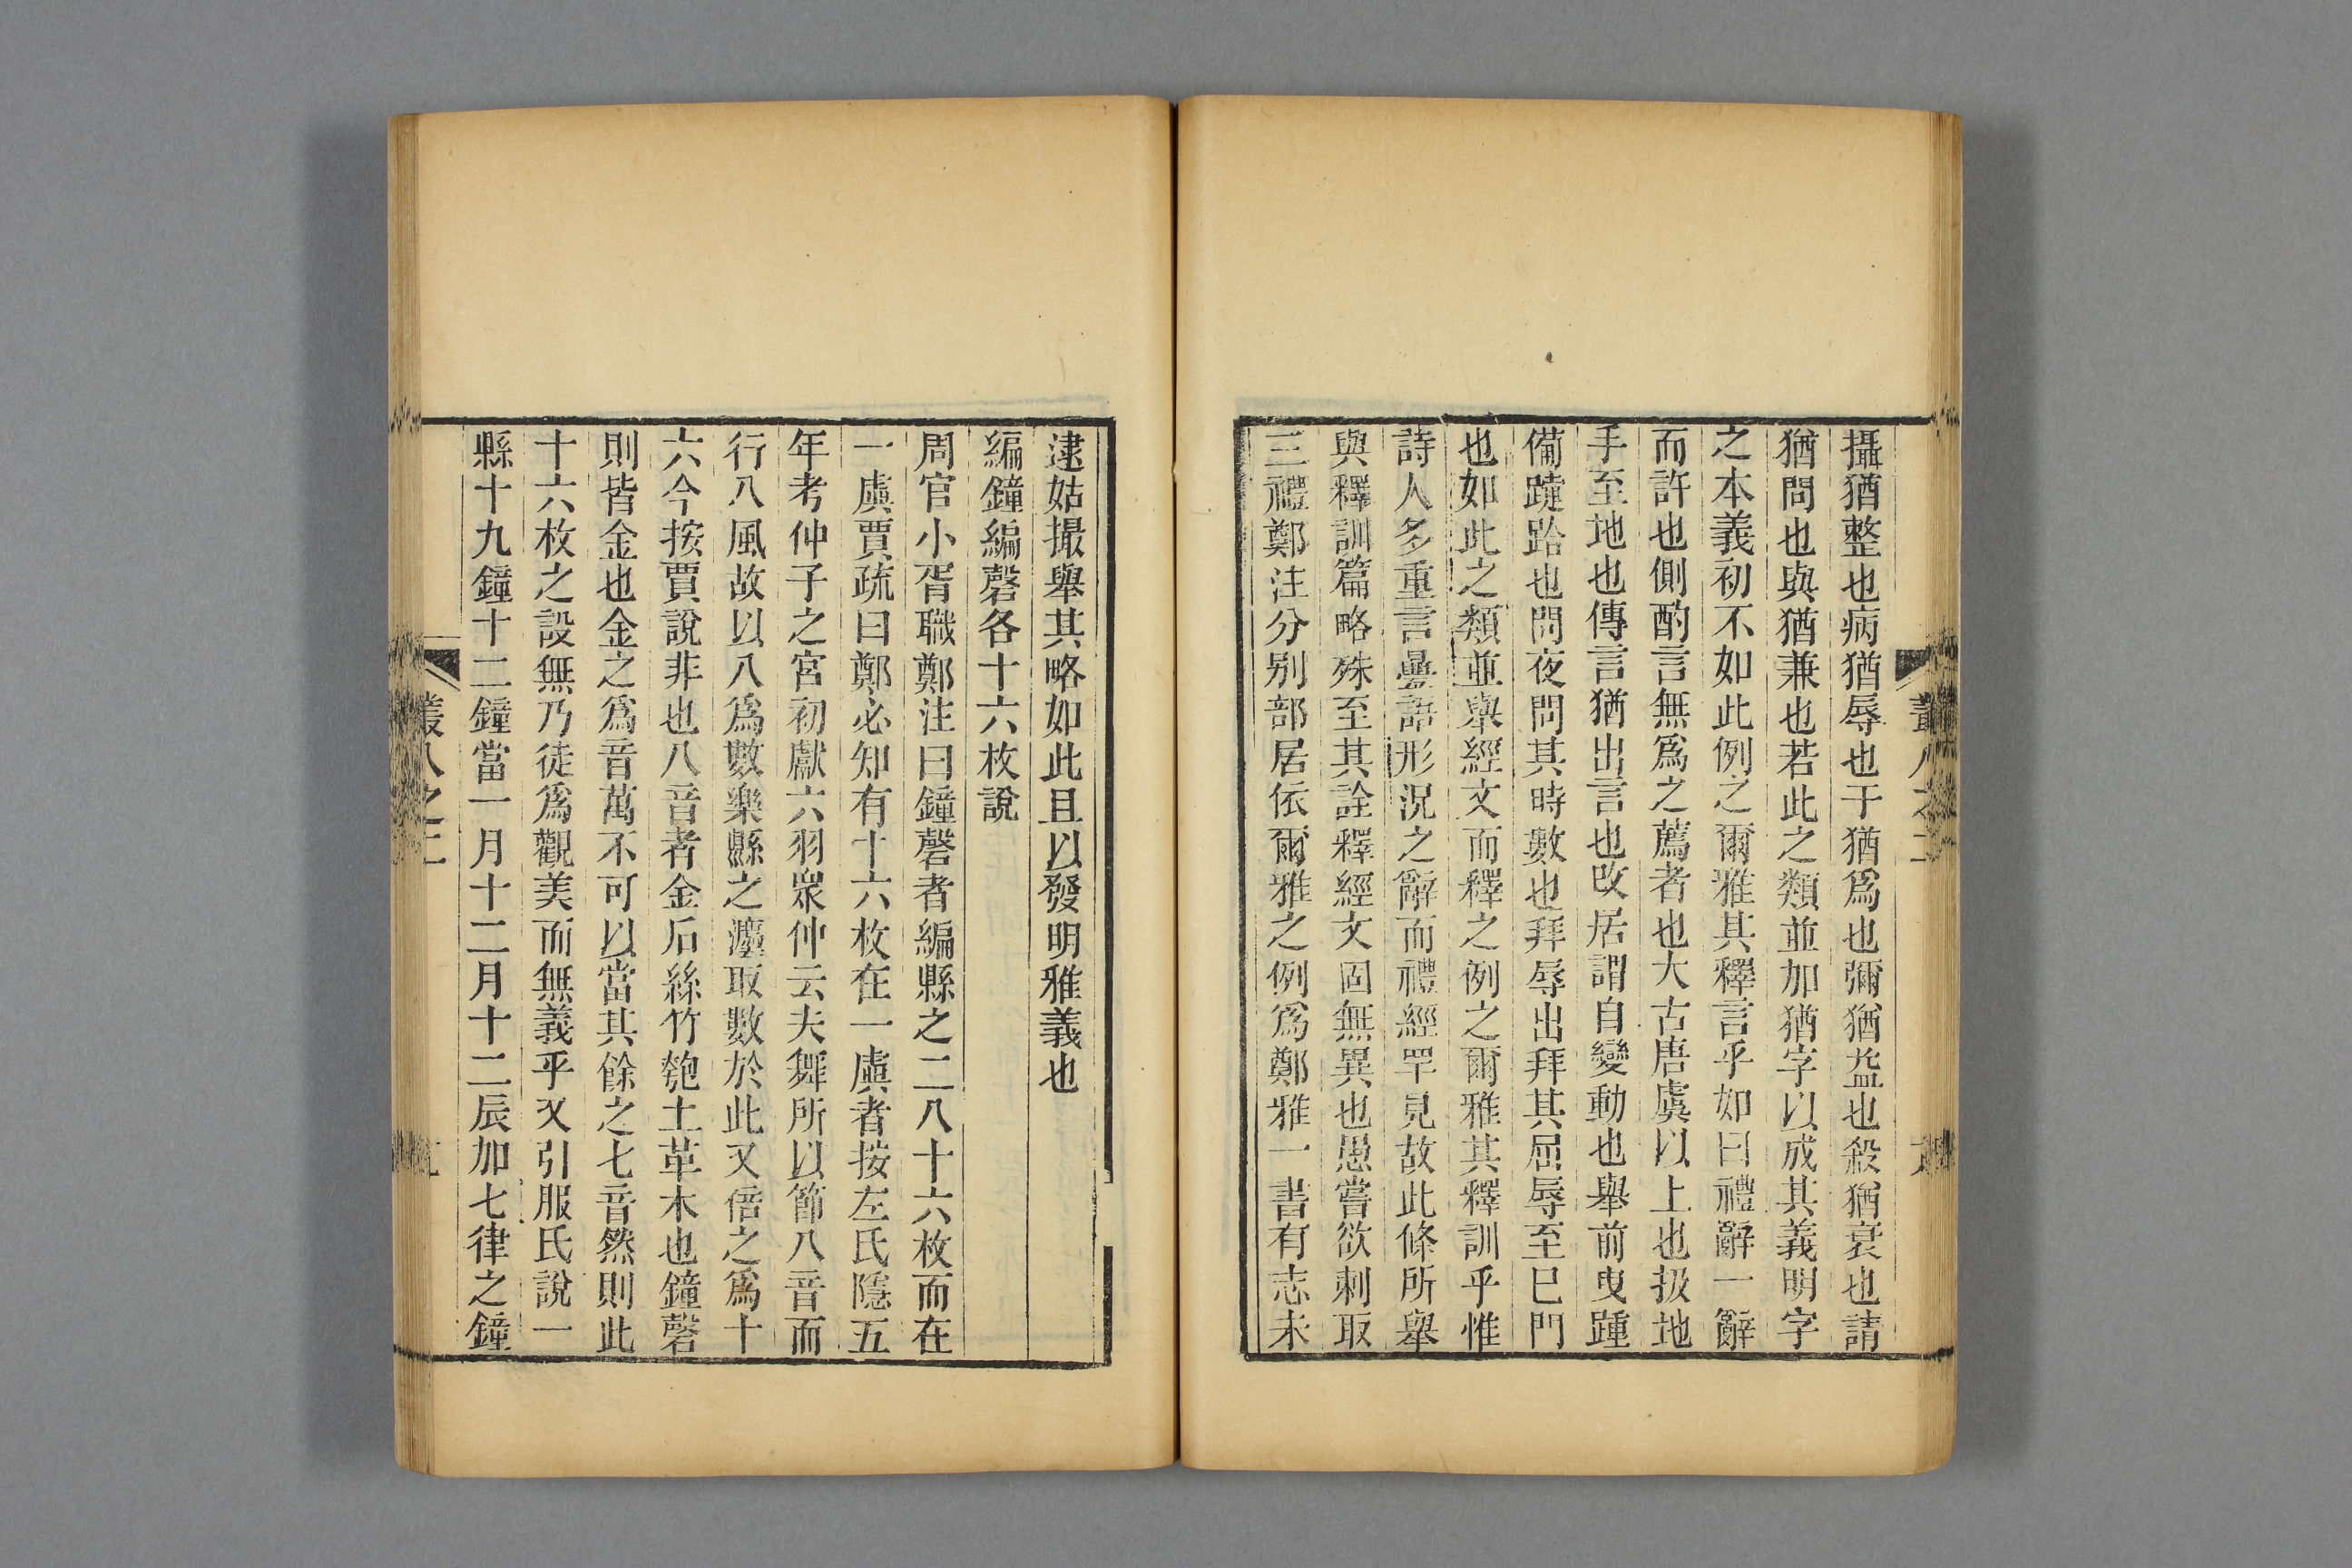 攝猶整也病猶辱也于猶爲也彌猶益也殺猶衰也請
猶問也與猶兼也若此之類並加猶字以成其義明字
之本義初不如此例之爾雅其釋言乎如曰禮辭一辭
而許也側酌言無爲之薦者也大古唐虞以上也扱地
手至地也傳言猶出言也改居謂自變動也舉前曳踵
備踕跲也問夜問其時數也拜辱出拜其屈辱至已門
也如此之類並舉經文而釋之例之爾雅其釋訓乎惟
詩人多重言曡語形況之辭而禮經罕見故此條所舉
與釋訓篇略殊至其詮釋經文固無異也愚嘗欲刺取
三禮鄭注分别部居依爾雅之例爲鄭雅一書有志未
叢八之二
逮姑撮舉其略如此且以發明雅義也
編鐘編磬各十六枚說
周官小胥職鄭注曰鐘磬者編縣之二八十六枚而在
一虡賈疏曰鄭必知有十六枚在一虡者按左氏隱五
年考仲子之宮初獻六羽眾仲云夫舞所以節八音而
行八風故以八爲數樂縣之灋取數於此又倍之爲十
六今按賈說非也八音者金石絲竹匏土革木也鐘磬
則皆金也金之爲音萬不可以當其餘之七音然則此
十六枚之設無乃徒爲觀美而無義乎又引服氏說一
縣十九鐘十二鐘當一月十二月十二辰加七律之鐘
叢八之二